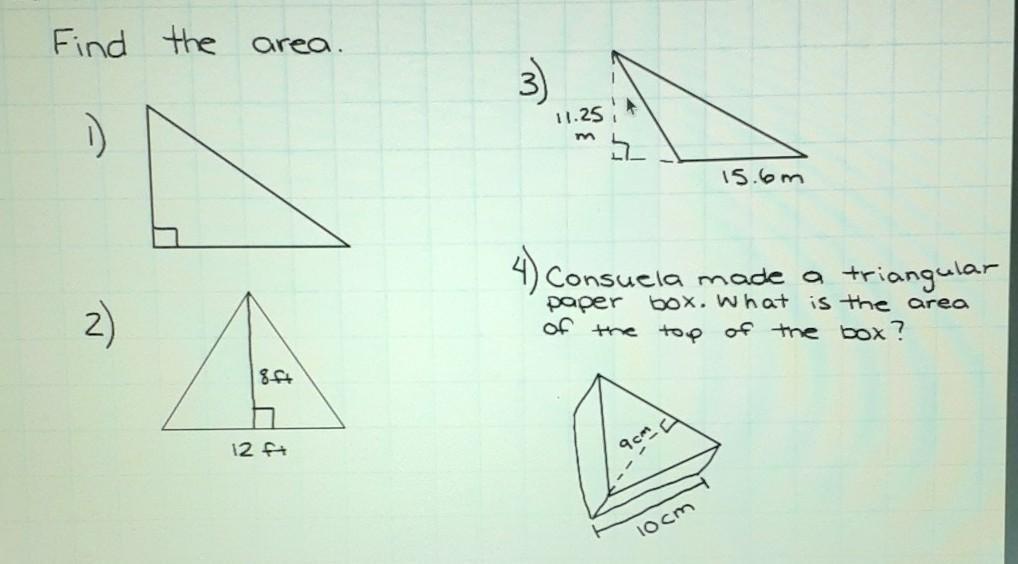 Find the area.
1)
2)
8ft
12 ft
3)
11.25
m
15.6m
4) Consuela made a triangular
paper box. What is the area
of the top of the box?
9cm
10cm